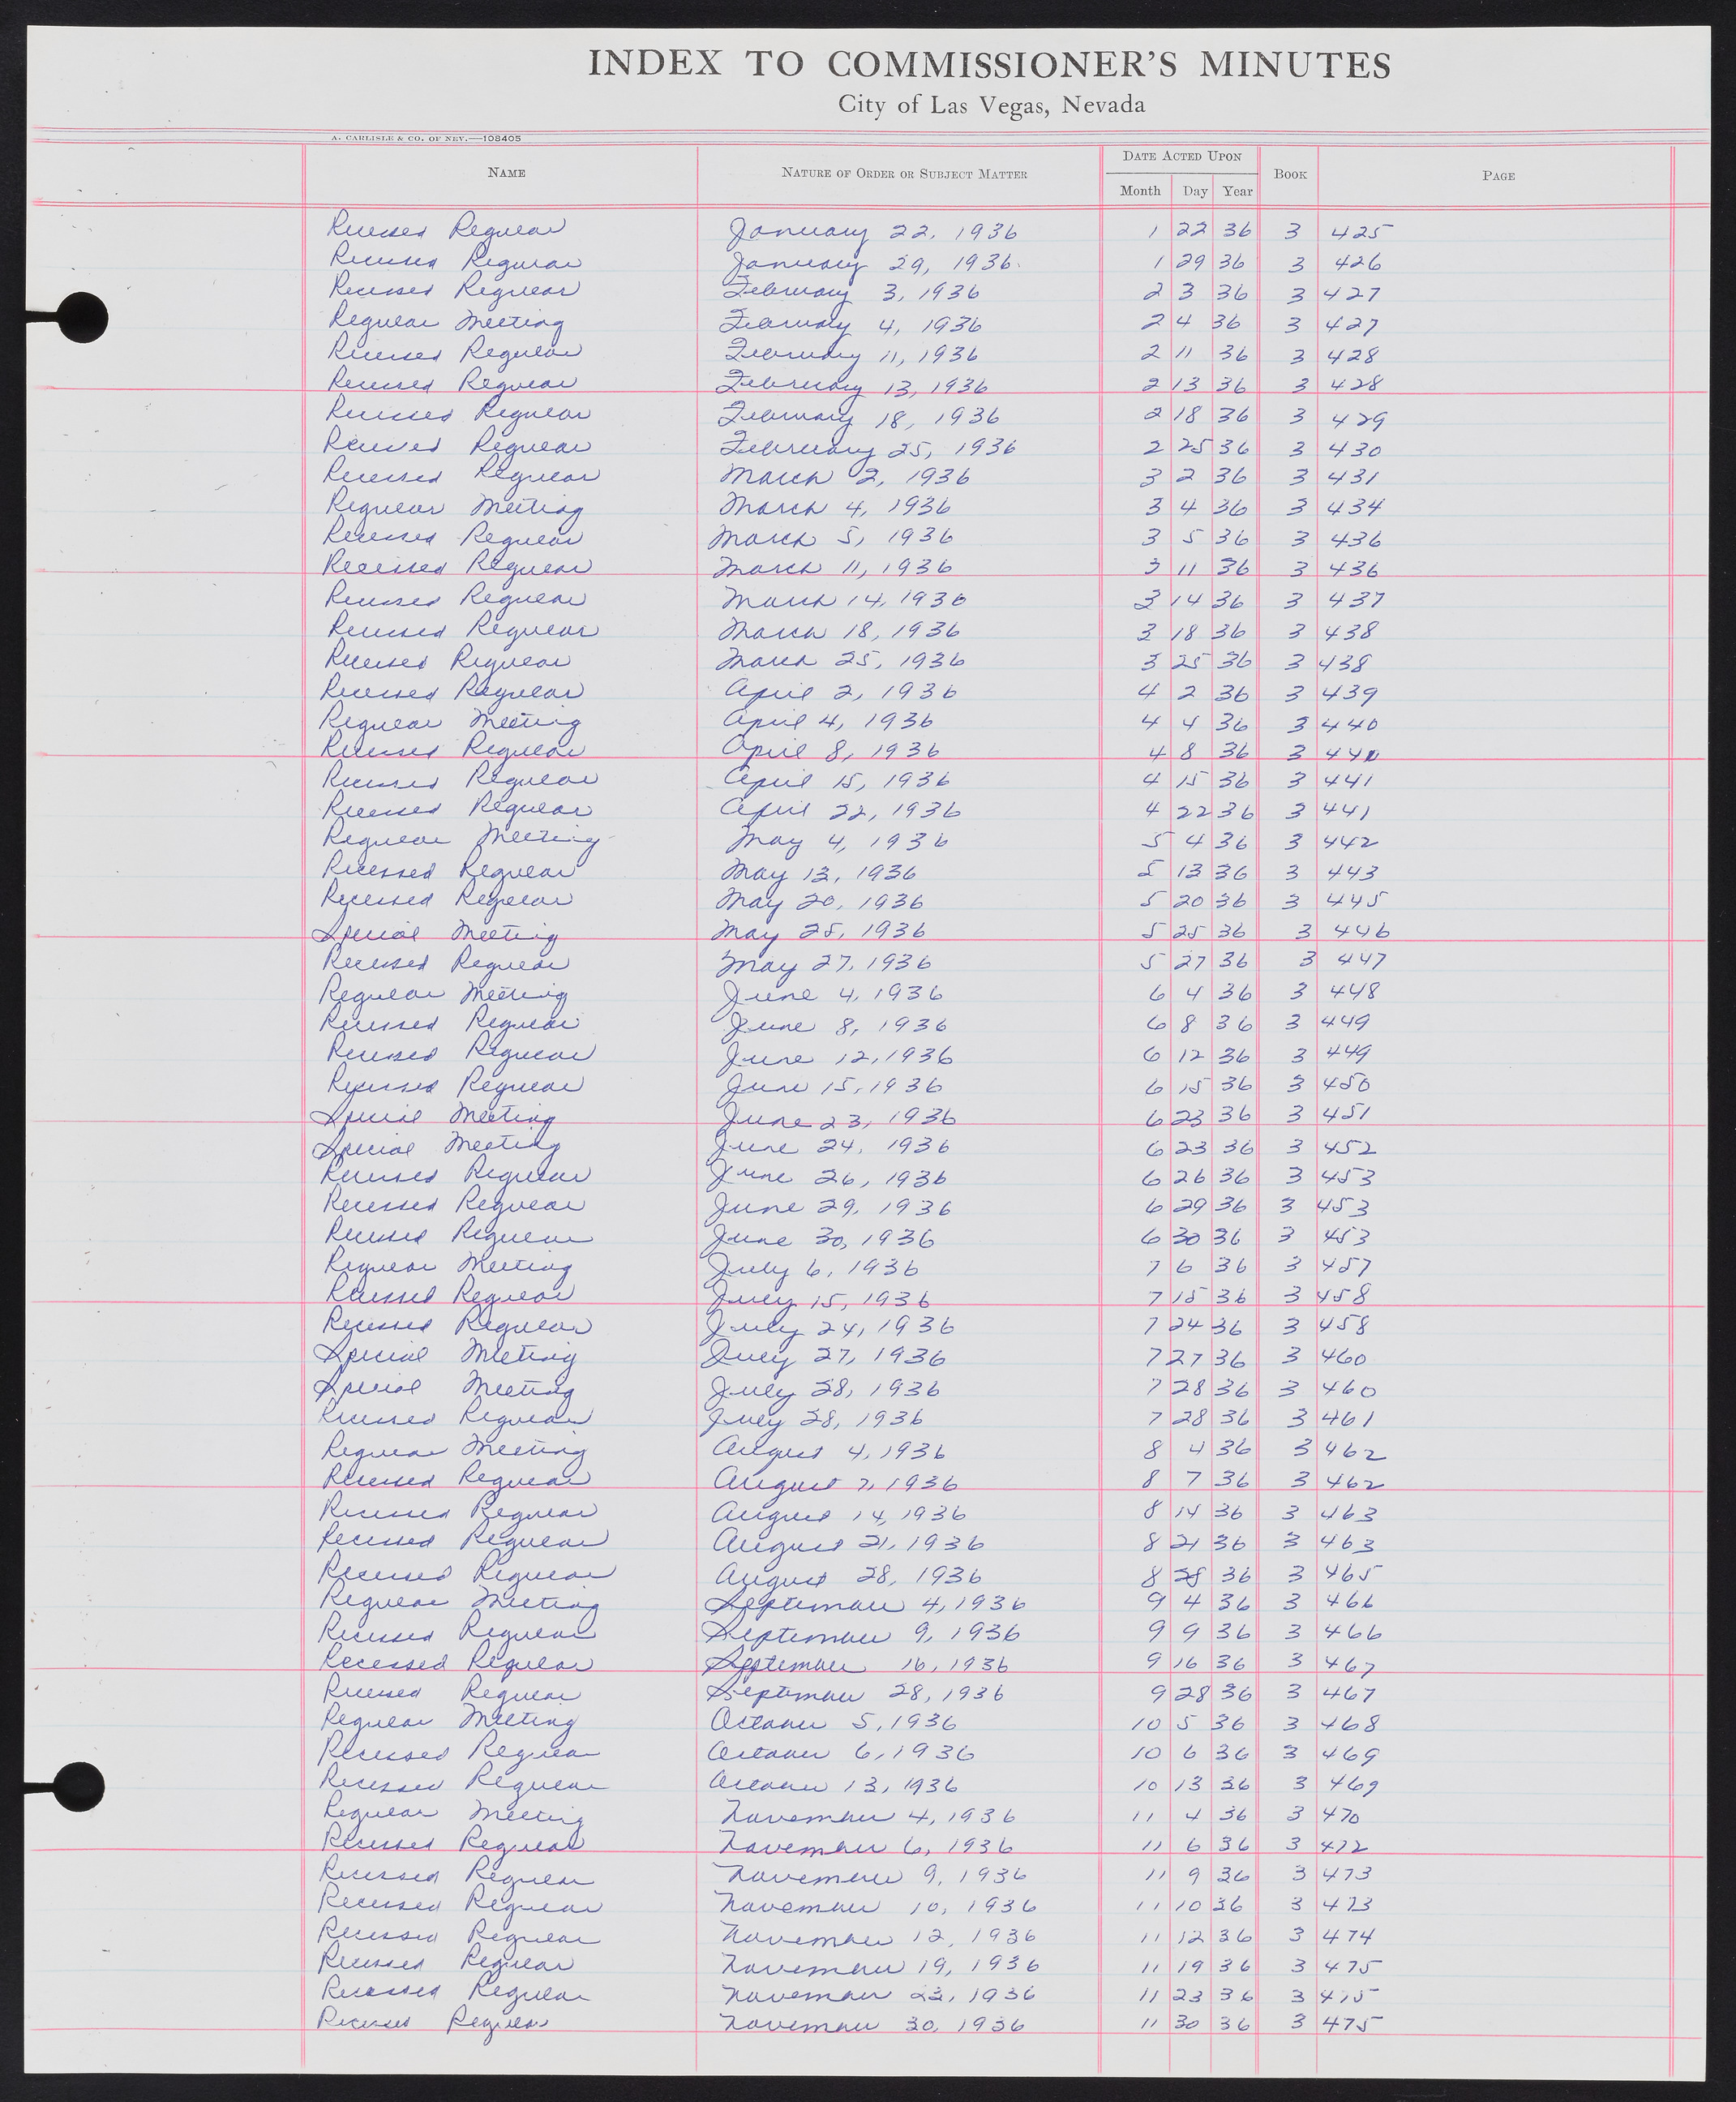 INDEX TO COMMISSIONER'S MINUTES
City of Las Vegas, Nevada
A. CARLISLE & CO. OF NEV.—108405
NAME NATURE OF ORDER OR SUBJECT MATTER DATE ACTED UPON BOOK PAGE
Month Day Year
Recessed Regular January 22, 1936 1 22 36 3 425
Recessed Regular January 29, 1936. 1 29 36 3 426
Recessed Regular February 3, 1936 2 3 36 3 427
Regular Meeting February 4, 1936 2 4 36 3 427
Recessed Regular February 11, 1936 2 11 36 3 428
Recessed Regular February 13, 1936 2 13 36 3 428
Recessed Regular February 18, 1936 2 18 36 3 429
Recessed Regular February 25, 1936 2 25 36 3 430
Recessed Regular March 2, 1936 3 2 36 3 431
Regular Meeting March 4, 1936 3 4 36 3 434
Recessed Regular March 5, 1936 3 5 36 3 436
Recessed Regular March 11, 1936 3 11 36 3 436
Recessed Regular March 14, 1936 3 14 36 3 437
Recessed Regular March 18, 1936 3 18 36 3 438
Recessed Regular March 25, 1936 3 25 36 3 438
Recessed Regular April 2, 1936 4 2 36 3 439
Regular Meeting April 4, 1936 4 4 36 3 440
Recessed Regular April 8, 1936 4 8 36 3 440
Recessed Regular April 15, 1936 4 15 36 3 441
Recessed Regular April 22, 1936 4 22 36 3 441
Regular Meeting May 4, 1936 5 4 36 3 442
Recessed Regular May 13, 1936 5 13 36 3 443
Recessed Regular May 20, 1936 5 20 36 3 445
Special Meeting May 25, 1936 5 25 36 3 446
Recessed Regular May 27, 1936 5 27 36 3 447
Regular Meeting June 4, 1936 6 4 36 3 448
Recessed Regular June 8, 1936 6 8 36 3 449
Recessed Regular June 12, 1936 6 12 36 3 449
Recessed Regular June 15, 1936 6 15 36 3 450
Special Meeting June 23, 1936 6 23 36 3 451
Special Meeting June 24, 1936 6 23 36 3 452
Recessed Regular June 26, 1936 6 26 36 3 453
Recessed Regular June 29, 1936 6 29 36 3 453
Recessed Regular June 30, 1936 6 30 36 3 453
Regular Meeting July 6, 1936 7 6 36 3 457
Recessed Regular July 15, 1936 7 15 36 3 458
Recessed Regular July 24, 1936 7 24 36 3 458
Special Meeting July 27, 1936 7 27 36 3 460
Special Meeting July 28, 1936 7 28 36 3 460
Recessed Regular July 28, 1936 7 28 36 3 461
Regular Meeting August 4, 1936 8 4 36 3 462
Recessed Regular August 7, 1936 8 7 36 3 462
Recessed Regular August 14, 1936 8 14 36 3 463
Recessed Regular August 21, 1936 8 21 36 3 463
Recessed Regular August 28, 1936 8 28 36 3 465
Regular Meeting September 4, 1936 9 4 36 3 466
Recessed Regular September 9, 1936 9 9 36 3 466
Recessed Regular September 16, 1936 9 16 36 3 467
Recessed Regular September 28, 1936 9 28 36 3 467
Regular Meeting October 5, 1936 10 5 36 3 468
Recessed Regular October 6, 1936 10 6 36 3 469
Recessed Regular October 13, 1936 10 13 36 3 469
Regular Meeting November 4, 1936 11 4 36 3 470
Recessed Regular November 6, 1936 11 6 36 3 472
Recessed Regular November 9, 1936 11 9 36 3 473
Recessed Regular November 10, 1936 11 10 36 3 473
Recessed Regular November 12, 1936 11 12 36 3 474
Recessed Regular November 19, 1936 11 19 36 3 475
Recessed Regular November 23, 1936 11 23 36 3 475
Recessed Regular November 30, 1936 11 30 36 3 475